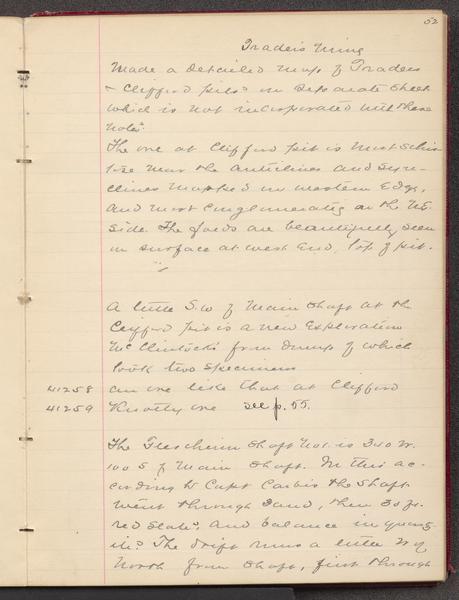 52
Traders Mine
Made a detailed map of Traders
& Clifford pits on separate sheet
which is not incorporated with these
notes.
The ore at Clifford pit is most schis
tose near the anticlines and syn-
clines mapped on western edge,
and most conglomeratic on the N.E.
side. The folds are beautifully seen
on surface at west end, top of pit.
A little S.W. of Main Shaft at the
Clifford pit is a new exploration
McClintocks from dump of which
took two specimens
41258 an ore like that at Clifford
41259 Knotty ore see p. 55.
The Shaft No 1. is 350 W.
100 S of Main Shaft. In this ac-
cording to Capt the Shaft
went through sand, then 30 ft.
red slate, and balance in quartz-
ite. The drift runs a little W of
North from shaft, first through